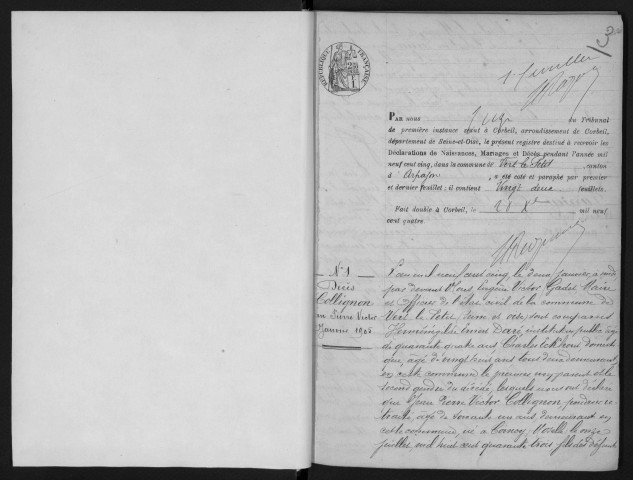 3
1er feuillet
RÉPUBLIQUE FRANÇAISE
PAR NOUS Juge du Tribunal
de première instance séant à Corbeil, arrondissement de Corbeil,
département de Seine-et-Oise, le présent registre destiné à recevoir les
Déclarations de Naissances, Mariages et Décès pendant l'année mil
neuf cent cinq, dans la commune de Vert le Petit canton
d'Arpajon, a été coté et paraphé par premier
et dernier feuillet; il contient Vingt deux feuillets.
Fait double à Corbeil, le 20 Xbre mil neuf
cent quatre.
N° 1
Décès
Collignon
Pierre Victor
Janvier 1905
L'an mil neuf cent cinq, le deux janvier, à
par devant Nous Eugène Victor Gadet Maire
et officier de l'état civil de la commune de
Vert le Petit, Seine et Oise, sont comparus
Herménégilde Ernest Daré, instituteur public, âgé
de quarante quatre ans, Charles domesti
que, âgé de vingt huit ans tous deux demeurant
en cette commune, le premier non parent et le
second gendre du décédé, lesquels nous ont déclaré
que Jean Pierre Victor Collignon, gendarme re
traité, âgé de soixante un ans demeurant en
cette commune, né à Corny, Moselle, le onze
juillet mil huit cent quarante trois, fils des défunts